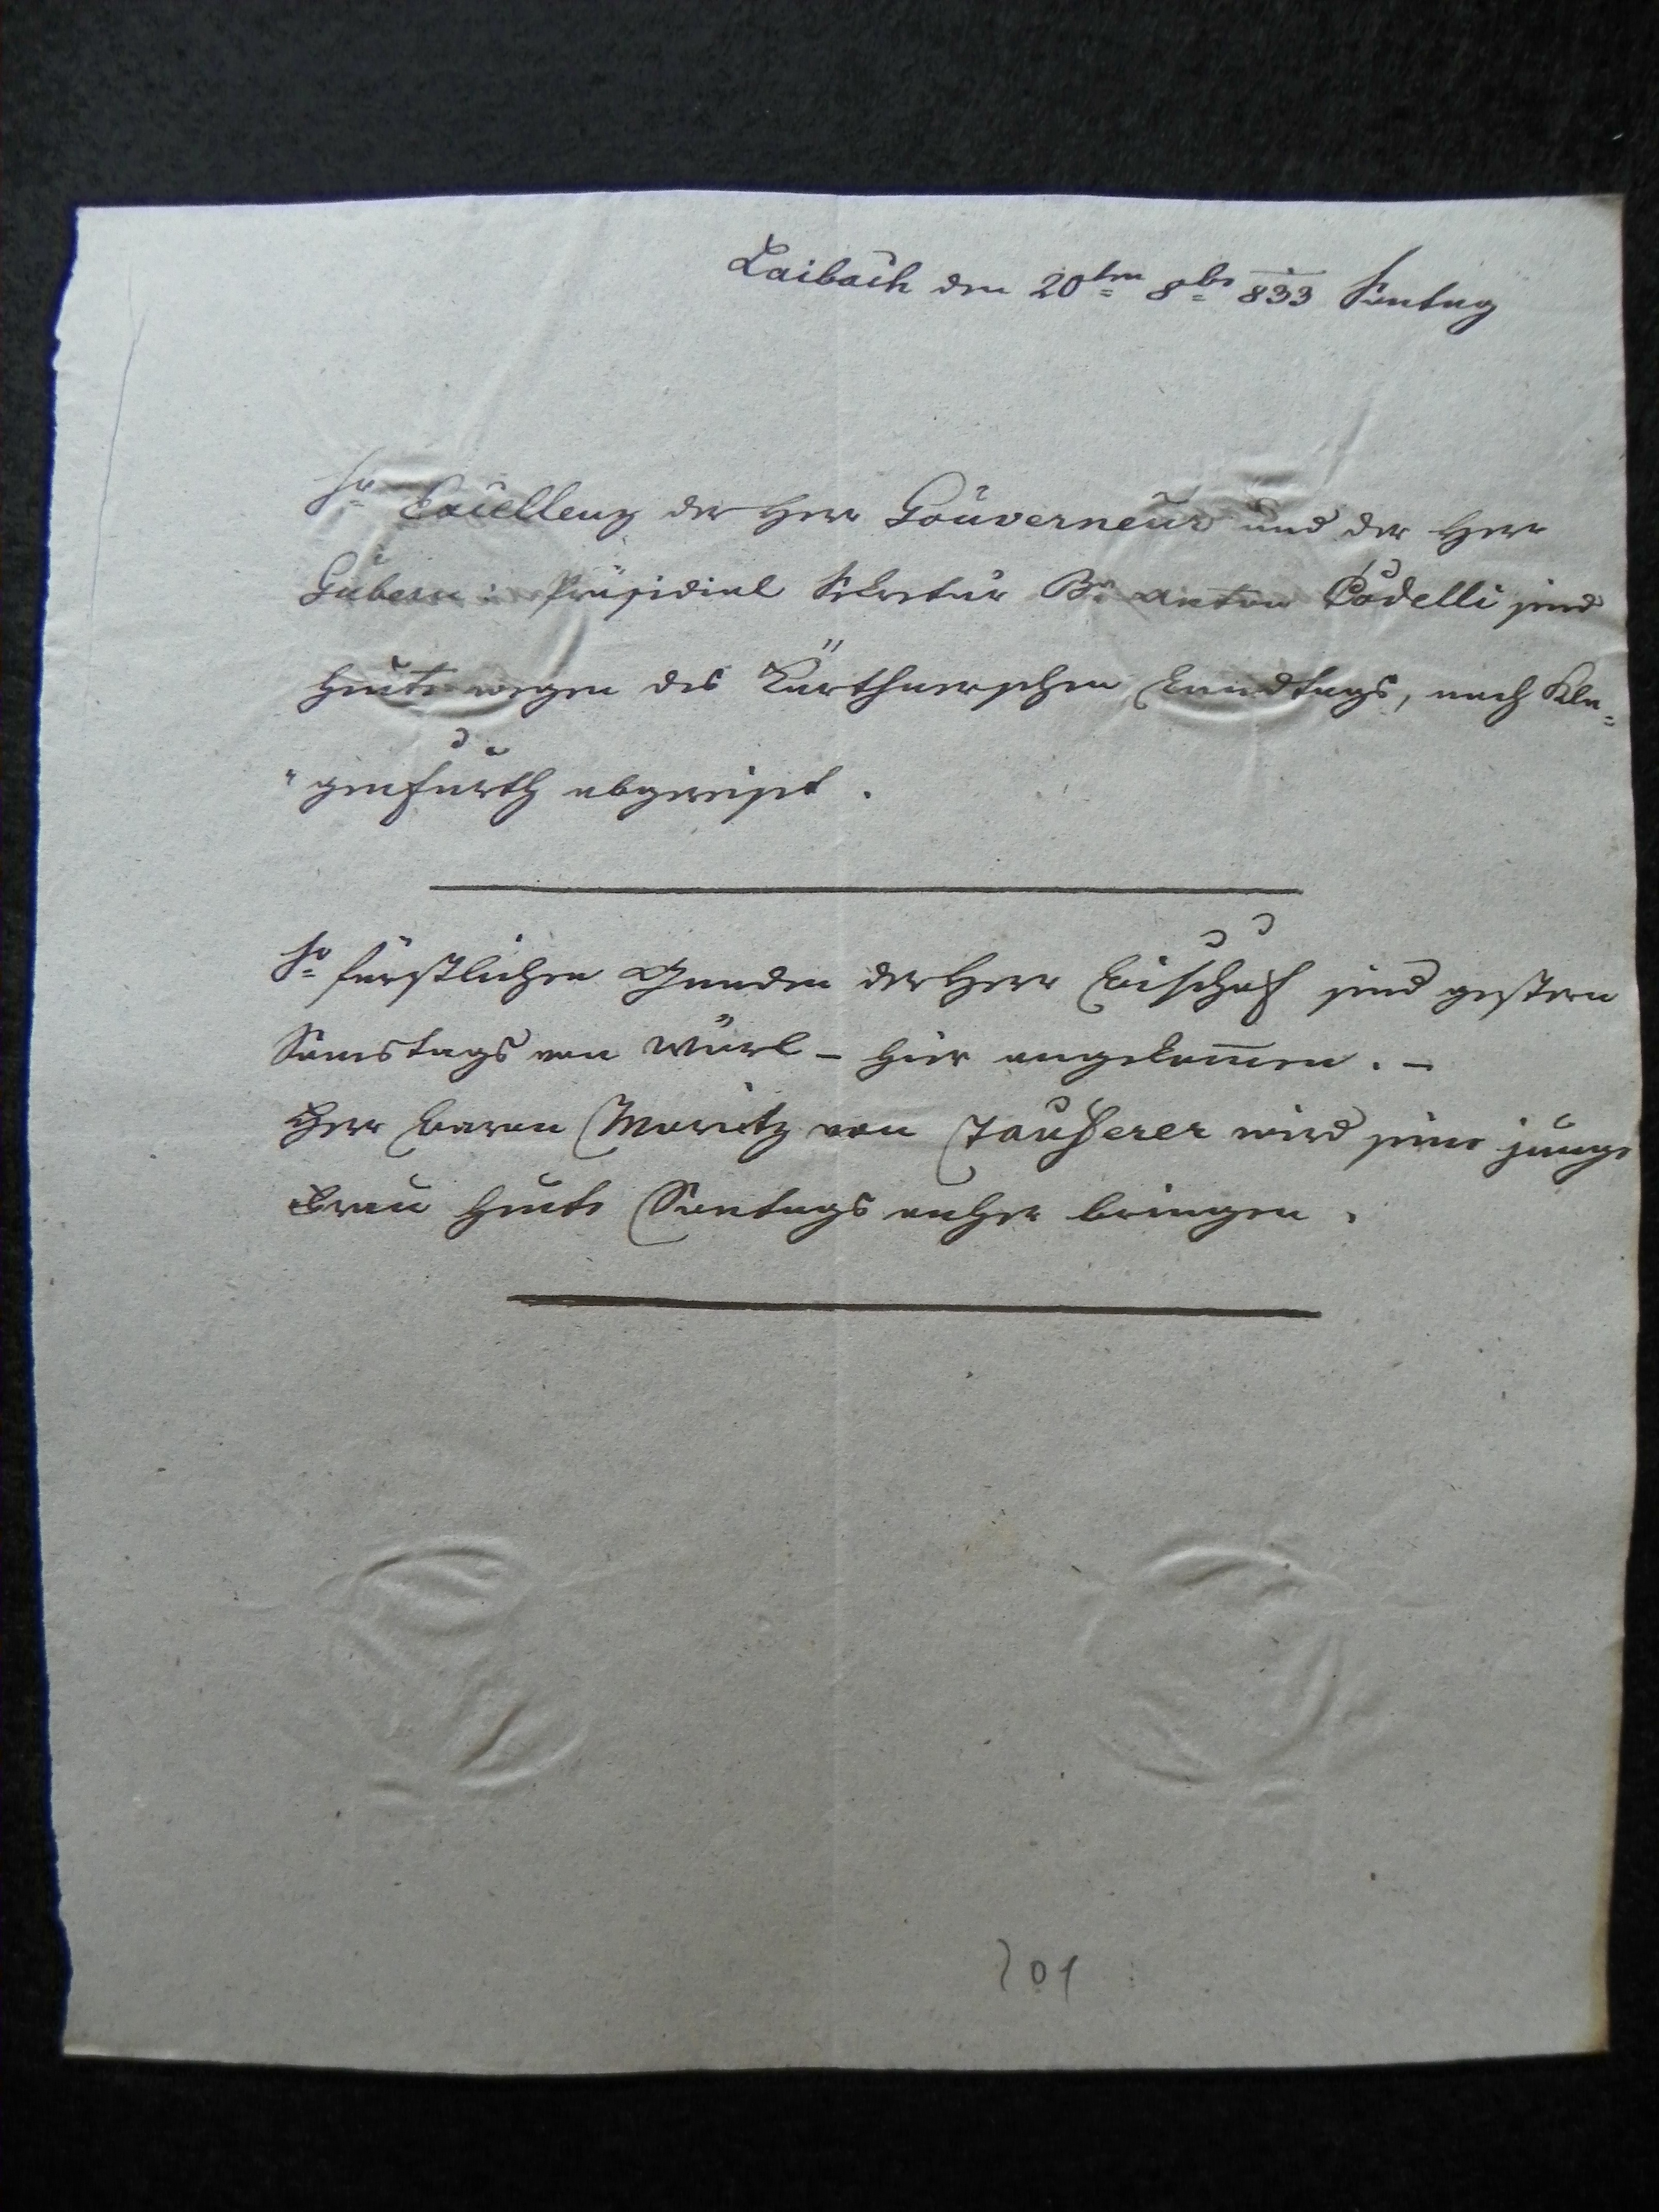 Laibach den 20ten 8ber 833 Sontag
Sr Excellenz der Herr Gouverneur und der Herr
Gubern: Präsidial Sekretär Br Anton Codelli sind
heute wegen des Kärthnerschen Landtags, nach Kla=
"genfurth abgereist.
Sr fürstlichen Gnaden der Herr Bischof sind gestern
Samstags von – hier angekommen. –
Herr Baron Moritz von Taufferer wird seine junge
Frau heute Sontags anher bringen.
201